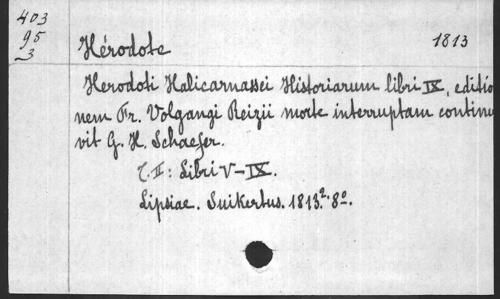 403
95
3
Hérodote 1813
Herodoti Halicarnassei Historiarum libri IX, editio
nem Fr. Volgangi Reizii morte interruptam continu
vit G. H. Schaefer.
T. II: Libri V-IX.
Lipsiae. Suikertus. 1813. 8°.